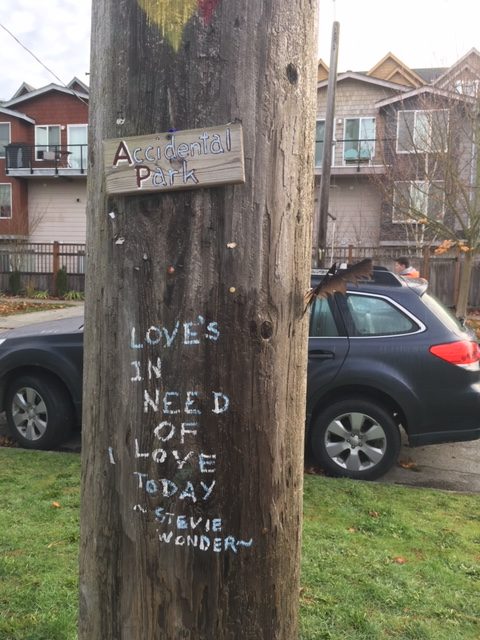 Accidental
Park
LOVE'S
IN
NEED
OF
LOVE
TODAY
~STEVIE
WONDER~